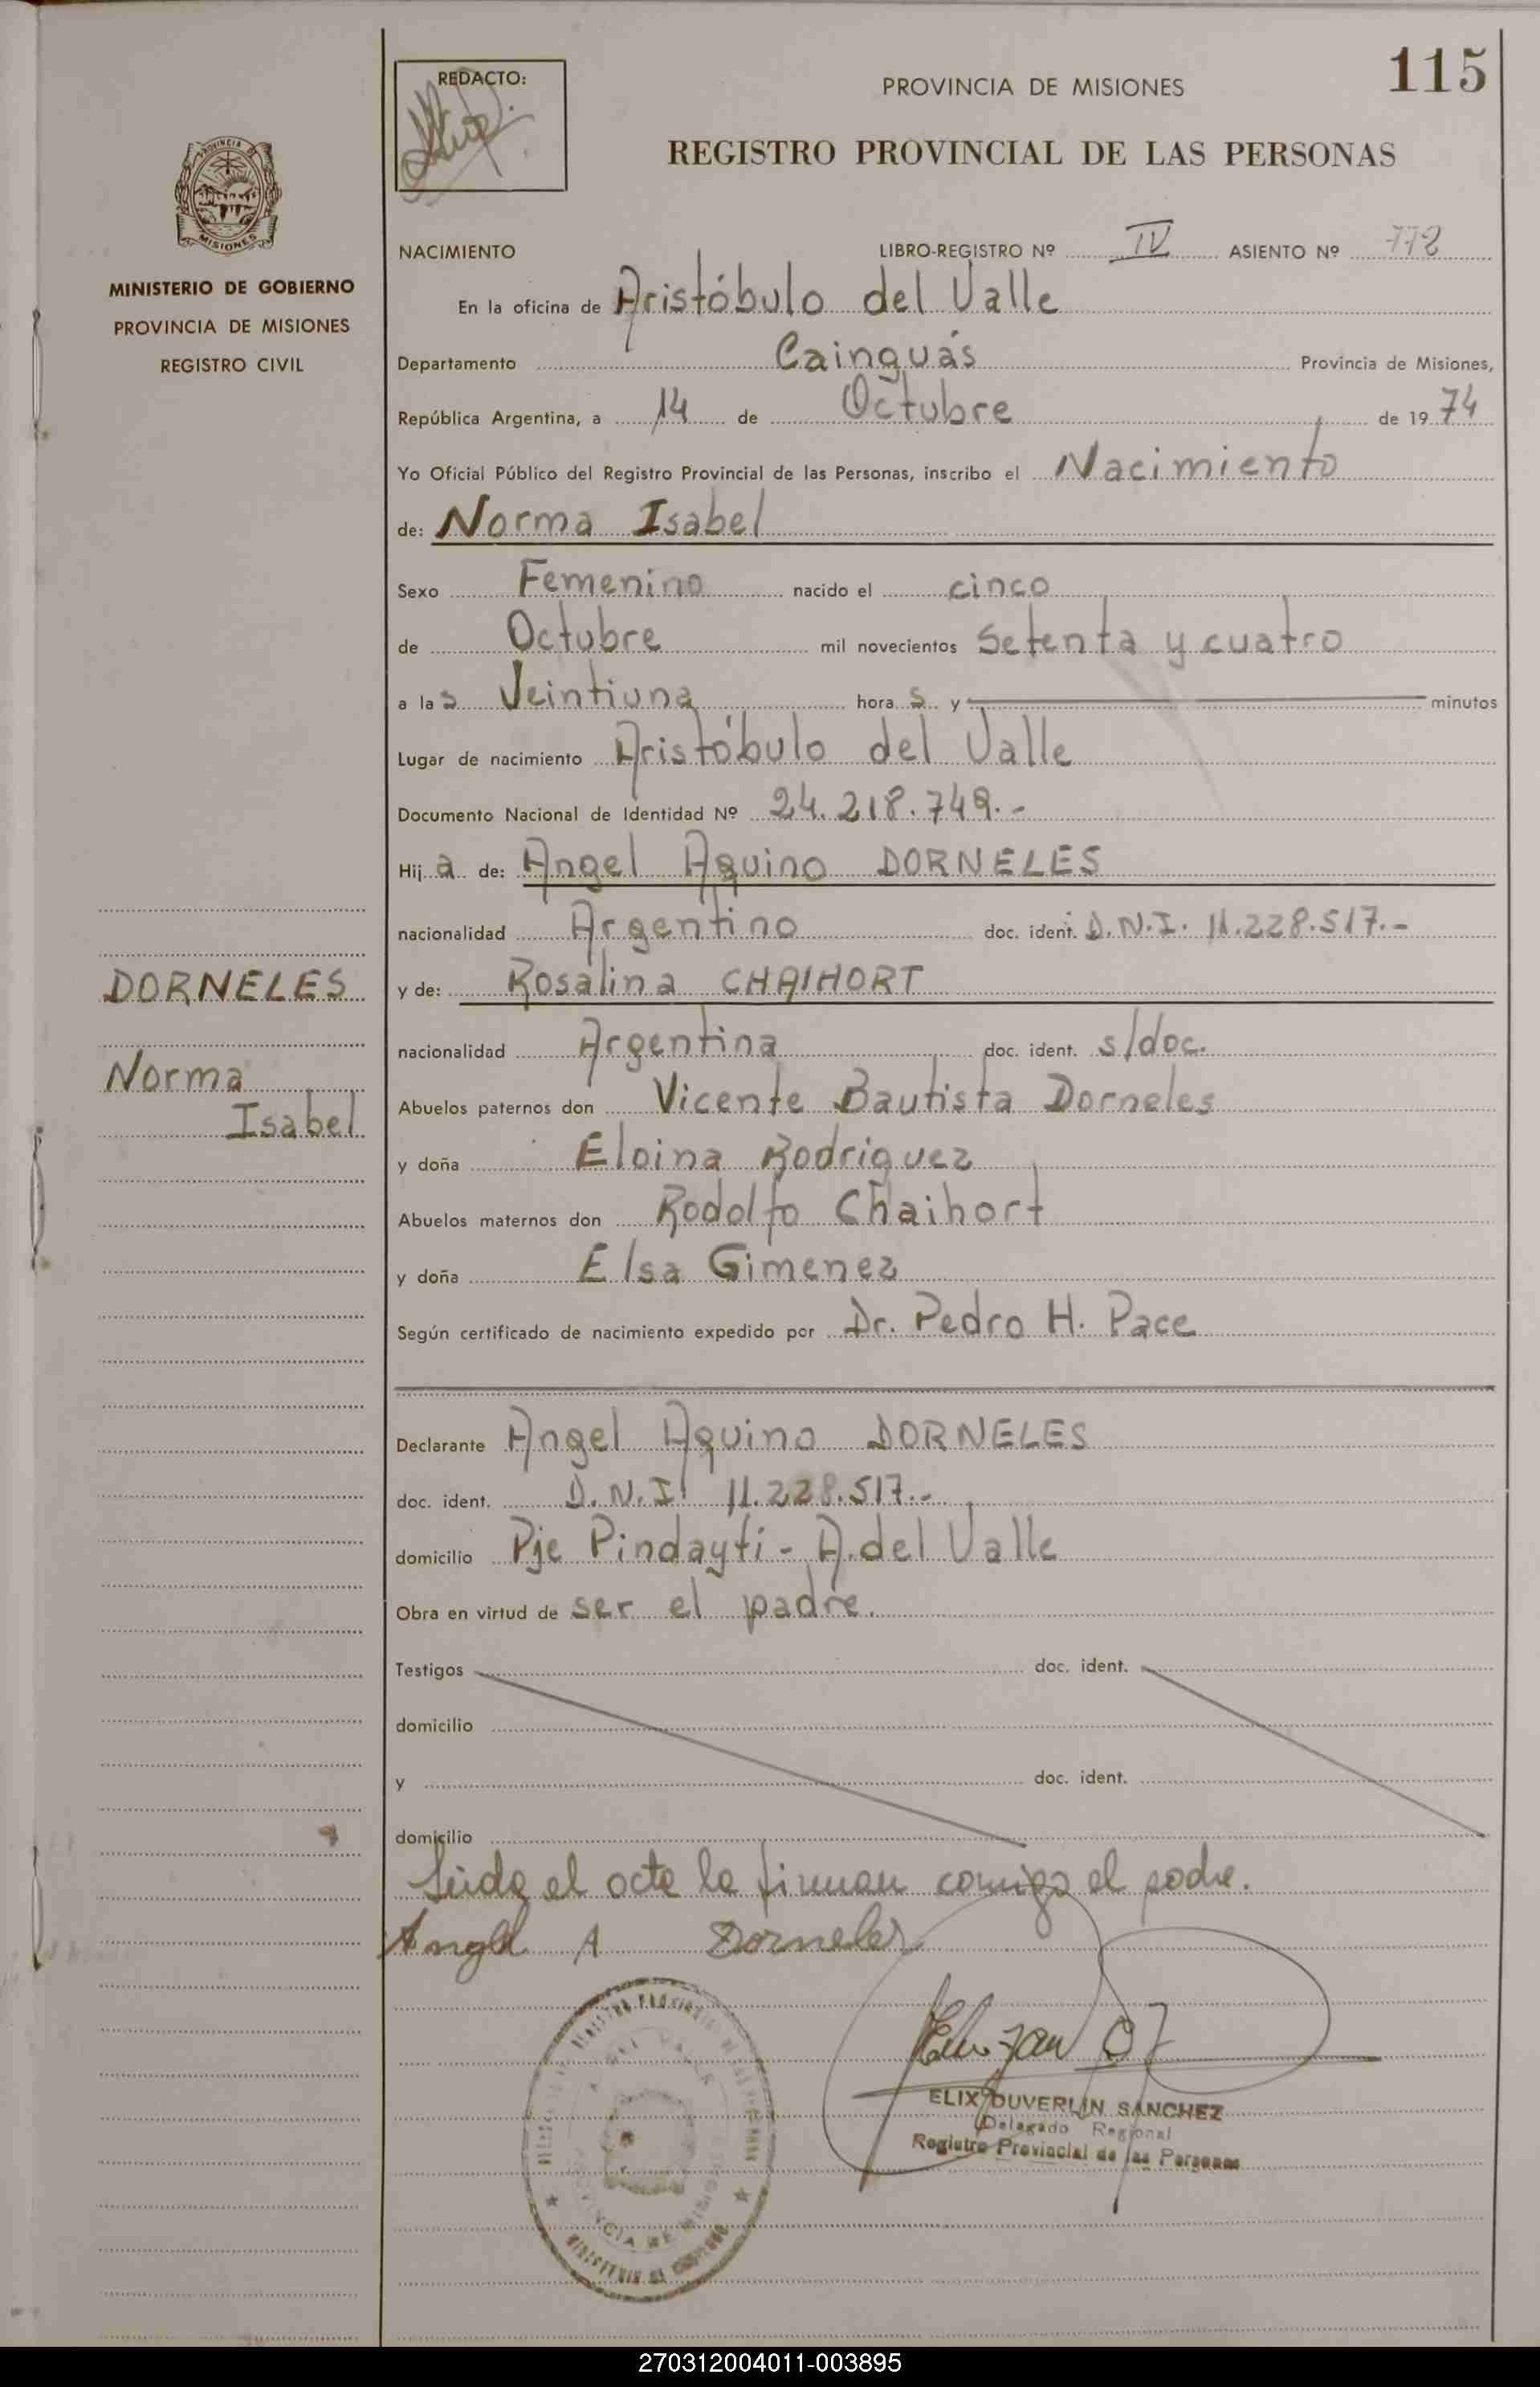 115
REDACTO:
PROVINCIA DE MISIONES
REGISTRO PROVINCIAL DE LAS PERSONAS
PROVINCIA DE
MISIONES
MINISTERIO DE GOBIERNO
PROVINCIA DE MISIONES
REGISTRO CIVIL
NACIMIENTO LIBRO-REGISTRO Nº IV ASIENTO Nº 772
En la oficina de Aristóbulo del Valle
Departamento Cainguás Provincia de Misiones,
República Argentina, a 14 de Octubre de 1974
Yo Oficial Público del Registro Provincial de las Personas, inscribo el Nacimiento
de: Norma Isabel
Sexo Femenino nacido el cinco
de Octubre mil novecientos setenta y cuatro
a las Veintiuna horas y minutos
Lugar de nacimiento Aristóbulo del Valle
Documento Nacional de Identidad Nº 24.218.749.-
Hija de: Angel Aquino DORNELES
nacionalidad Argentino doc. ident. D.N.I. 11.228.517.-
DORNELES
y de: Rosalina CHAIHORT
nacionalidad Argentina doc. ident. s/doc.
Norma
Isabel
Abuelos paternos don Vicente Bautista Dorneles
y doña Eloina Rodriguez
Abuelos maternos don Rodolfo Chaihort
y doña Elsa Gimenez
Según certificado de nacimiento expedido por Dr. Pedro H. Pace
Declarante Angel Aquino DORNELES
doc. ident. D.N.I 11.228.517.-
domicilio Pje Pindayti - A. del Valle
Obra en virtud de ser el padre.
Testigos doc. ident.
domicilio
y doc. ident.
domicilio
Leida el acta la firman conmigo el padre.
Angel A Dorneles
ELIX DUVERLIN SANCHEZ
Delegado Regional
Registro Provincial de las Personas
270312004011-003895